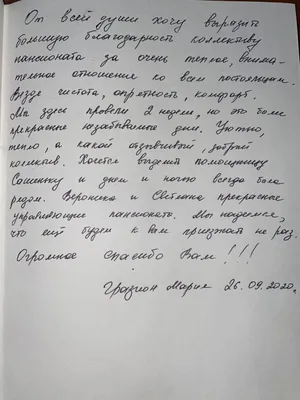 От всей души хочу выразить
большую благодарность коллективу
пансионата за очень теплое, внима-
тельное отношение ко всем постояльцам.
Везде чистота, опрятность, комфорт.
Мы здесь провели 2 недели, но это были
прекрасные незабываемые дни. Уютно,
тепло, а какой отзывчивый, добрый
коллектив. Хочется выделить помощницу
Сашеньку и днем и ночью всегда была
рядом. Вероника и Светлана прекрасные
управляющие пансионата. Мы надеемся,
что ещё будем к вам приезжать не раз.
Огромное спасибо Вам!!!
Мария 26.09.2020г.